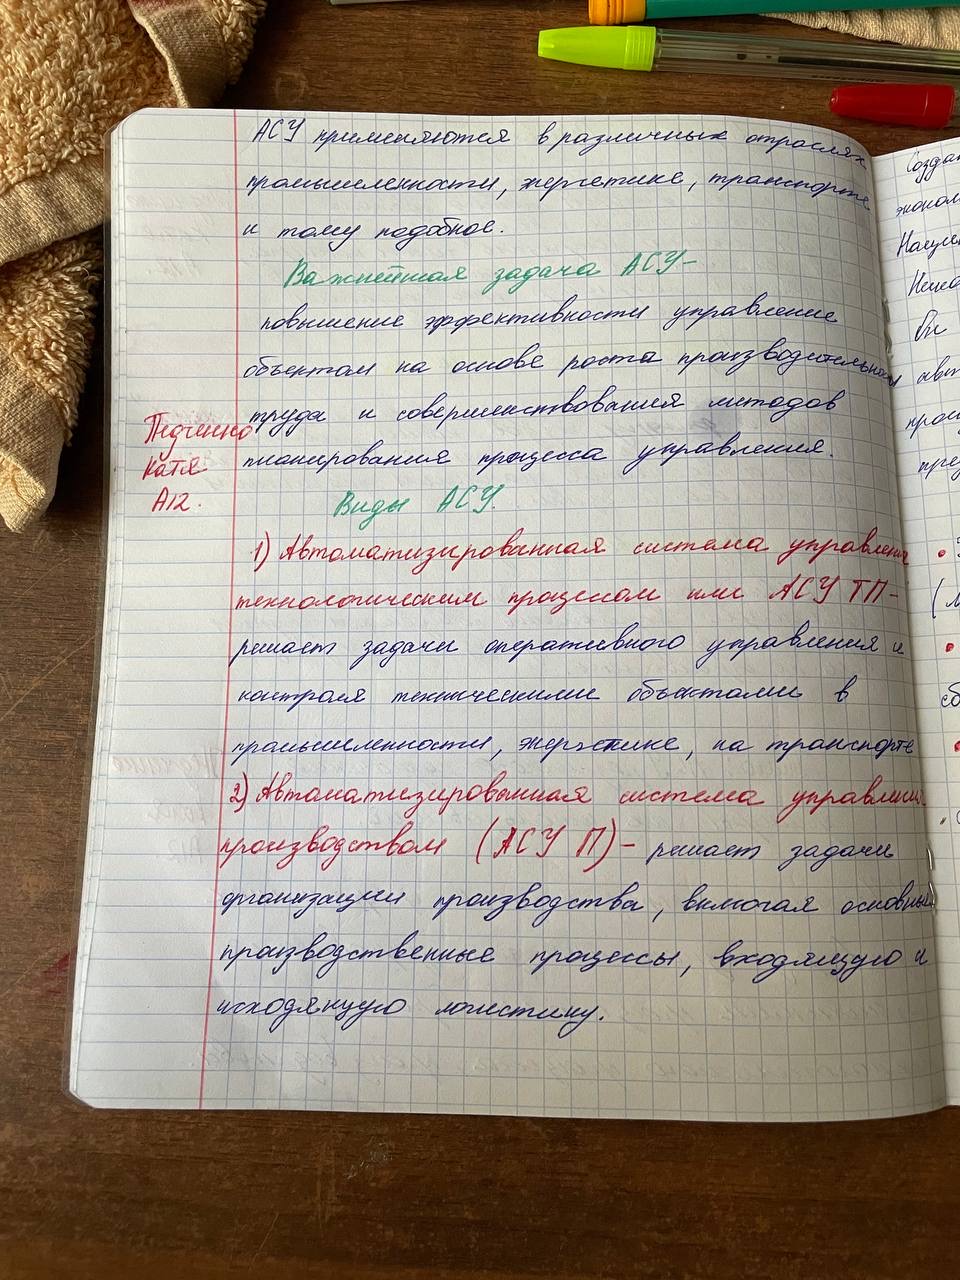 АСУ применяются в различных отраслях
промышленности, энергетике, транспорте
и тому подобное.
Важнейшая задача АСУ-
повышение эффективности управление
объектом на основе роста производительности
труда и совершенствования методов
планирования процесса управления.
Катя
А12.
Виды АСУ.
1) Автоматизированная система управления
технологическим процессом или АСУ ТП-
решает задачи оперативного управления и
контроля техническими объектами в
промышленности, энергетике, на транспорте
2) Автоматизированная система управления
производством (АСУ П)- решает задачи
организации производства, включая основные
производственные процессы, входящую и
исходящую логистику.